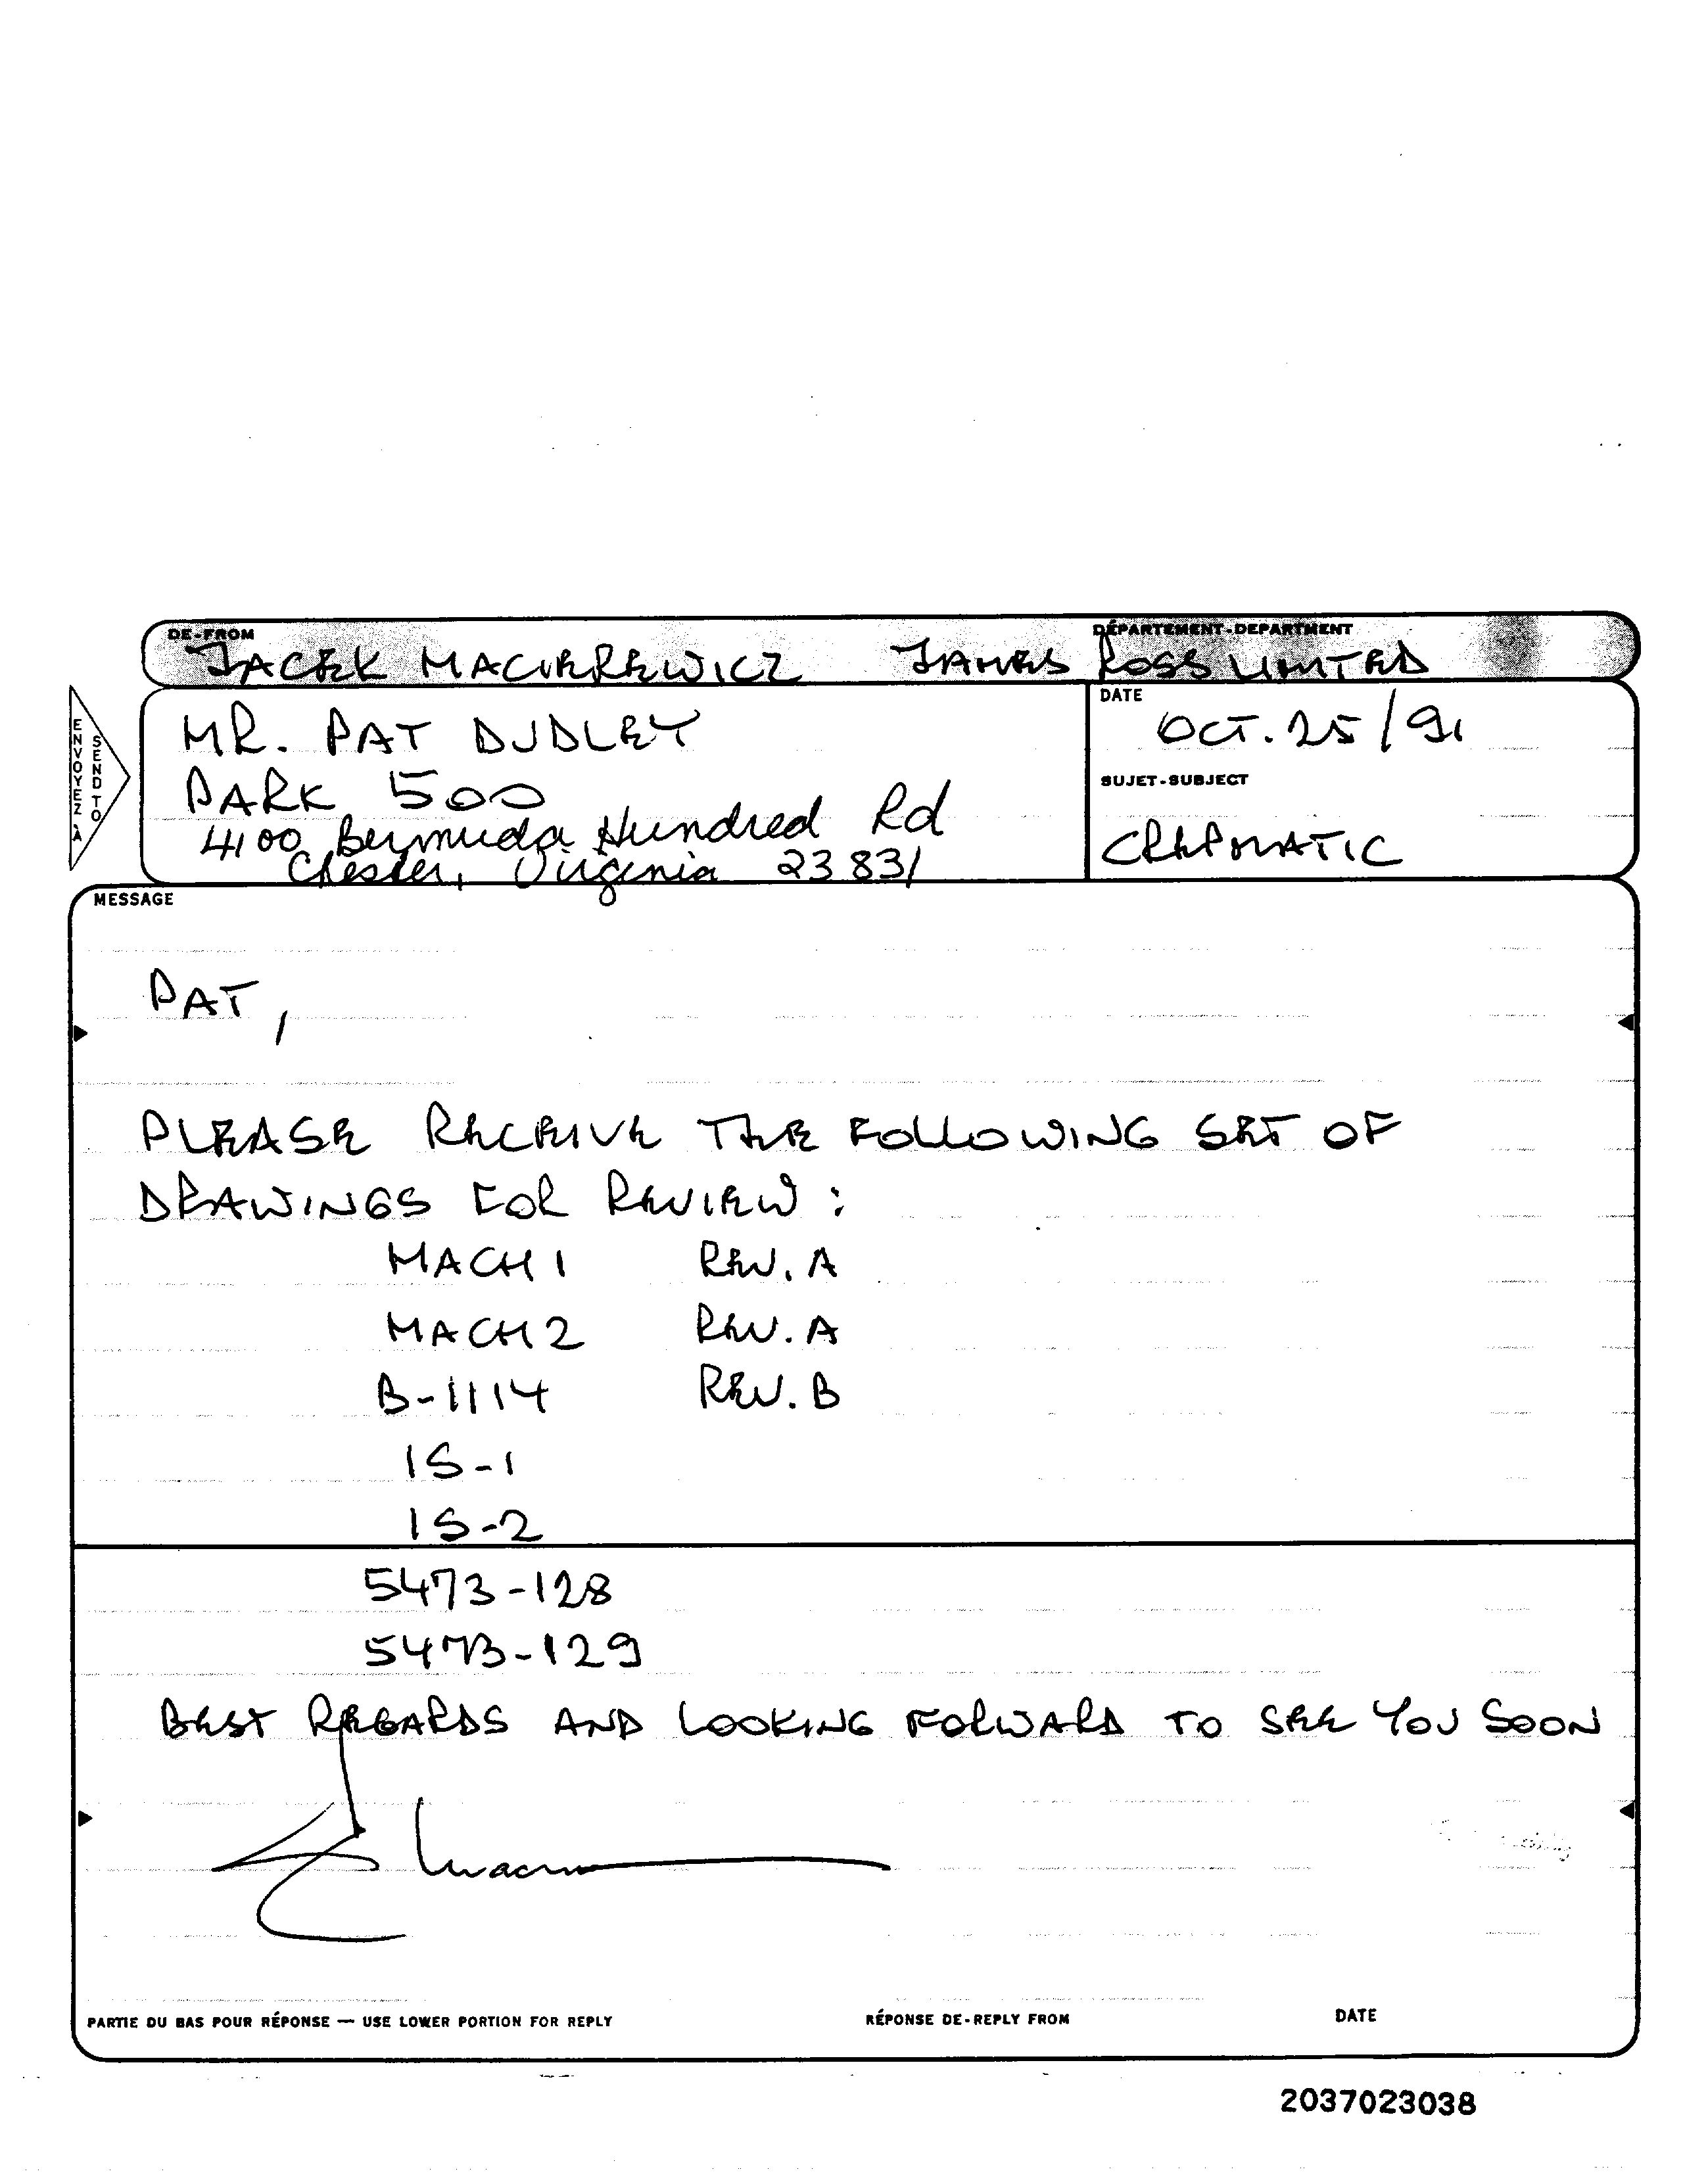 DE-FROM
DÉPARTEMENT-DEPARTMENT
JACEK MACIEREWICZ JAMES ROSS LIMITED
ENVOYEZ À
SEND TO
MR. PAT DUDLEY
PARK 500
4100 Bermuda Hundred Rd
Chester, Virginia 23831
DATE
OCT. 25/91
SUJET-SUBJECT
CREPMATIC
MESSAGE
PAT,
PLEASE RECEIVE THE FOLLOWING SET OF
DRAWINGS FOR REVIEW:
MACH 1 REV. A
MACH 2 REV. A
B-1114 REV. B
IS-1
IS-2
5473-128
5473-129
BEST REGARDS AND LOOKING FORWARD TO SEE YOU SOON
PARTIE DU BAS POUR RÉPONSE — USE LOWER PORTION FOR REPLY
RÉPONSE DE-REPLY FROM
DATE
2037023038